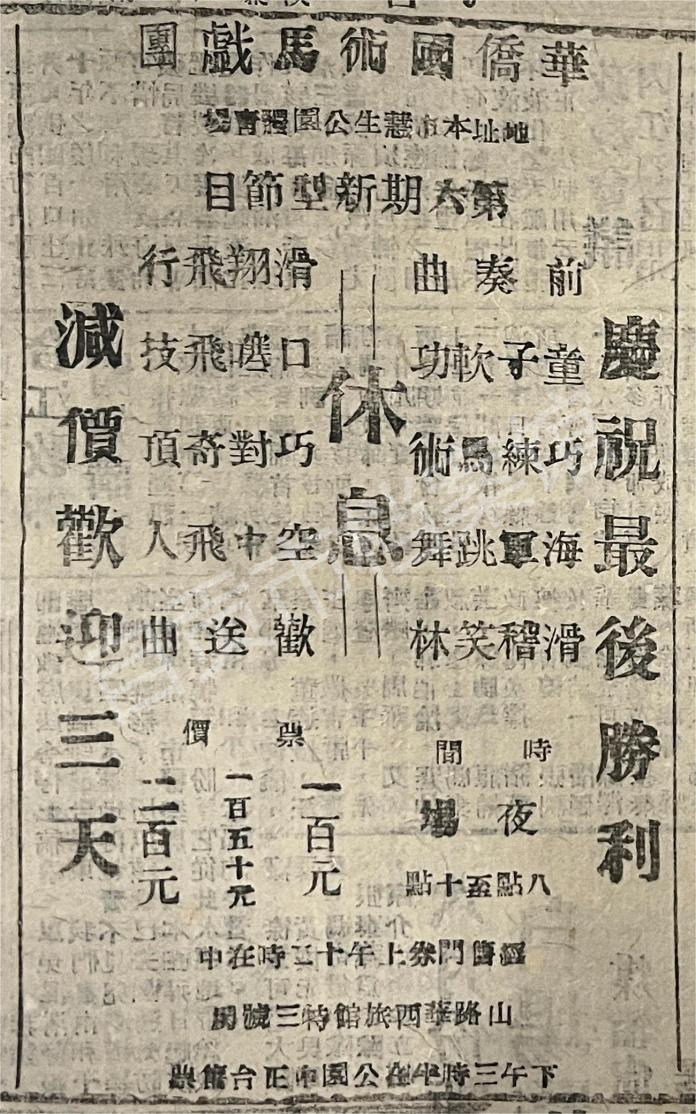 華僑國術馬戲團
地址本市慧生公園體育場
第六期新型節目
慶祝最後勝利
前奏曲
童子軟功
巧練馬術
海軍跳舞
滑稽笑林
休息
滑翔飛行
口飛技
巧對奇頂
空中飛人
歡送曲
減價歡迎三天
時間
夜場
八點至十點
票價
一百元
一百五十元
二百元
經售門券上午十二時在中
山路華西旅館特三號房
下午三時半在公園中正台售票